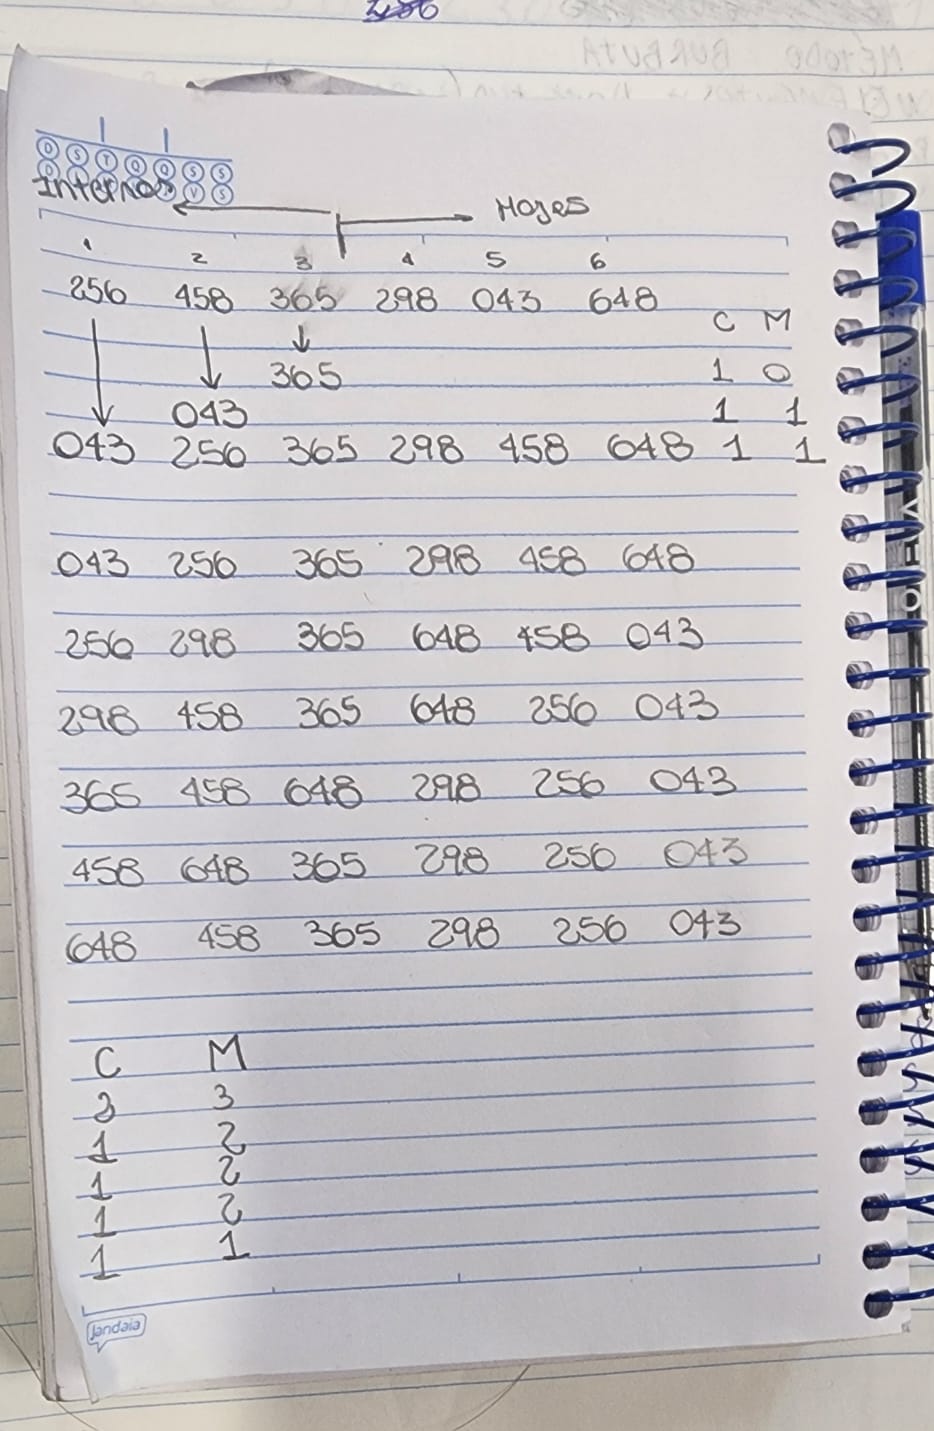 D S T Q Q S S
Internos
Hojas
1 2 3 4 5 6
256 458 365 298 043 648
C M
365 1 0
043 1 1
043 256 365 298 458 648 1 1
043 256 365 298 458 648
256 298 365 648 458 043
298 458 365 648 256 043
365 458 648 298 256 043
458 648 365 298 256 043
648 458 365 298 256 043
C M
3 3
1 2
1 2
1 2
1 1
jandaia